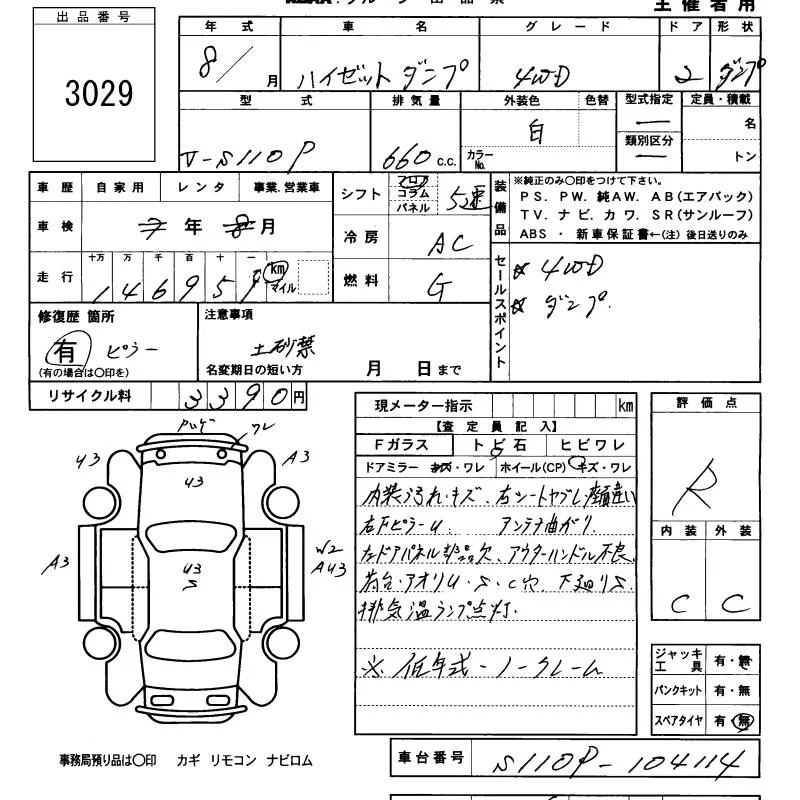 出品番号
3029
主催者用
年式 車名 グレード ドア 形状
8/ 月 ハイゼットダンプ 4WD 2 ダンプ
型式 排気量 外装色 色替 型式指定 定員・積載
V-S110P 660 c.c. 白 カラーNo. 類別区分 名
トン
車歴 自家用 レンタ 事業.営業車
車検 7年8月
走行 十万 万 千 百 十 一
146959 km マイル
シフト フロア コラム パネル 5速
冷房 AC
燃料 G
装備品
※純正のみ〇印をつけて下さい。
PS. PW. 純AW. AB(エアバック)
TV. ナビ. カワ. SR(サンルーフ)
ABS ・ 新車保証書←(注)後日送りのみ
セールスポイント
☆ 4WD
☆ ダンプ.
修復歴 箇所
有 ピラー
(有の場合は〇印を)
注意事項
土砂禁
名変期日の短い方 月 日まで
リサイクル料 3390円
現メーター指示 km
【査定員記入】
Fガラス トビ石 ヒビワレ
ドアミラー キズ・ワレ ホイール(CP) キズ・ワレ
内装汚れ・キズ、右シートヤブレ・
右Fピラーu. アンテナ曲がり.
左ドアパネル 欠、アウターハンドル不良、
荷台・アオリu・S・C穴、下廻りS.
排気温ランプ点灯.
※低年式-ノークレーム
評価点
R
内装 外装
C C
ジャッキ 工具 有・無
パンクキット 有・無
スペアタイヤ 有・無
ワレ
u3
A3
u3
A3
u3
S
W2
Au3
事務局預り品は〇印 カギ リモコン ナビロム
車台番号 S110P-104114